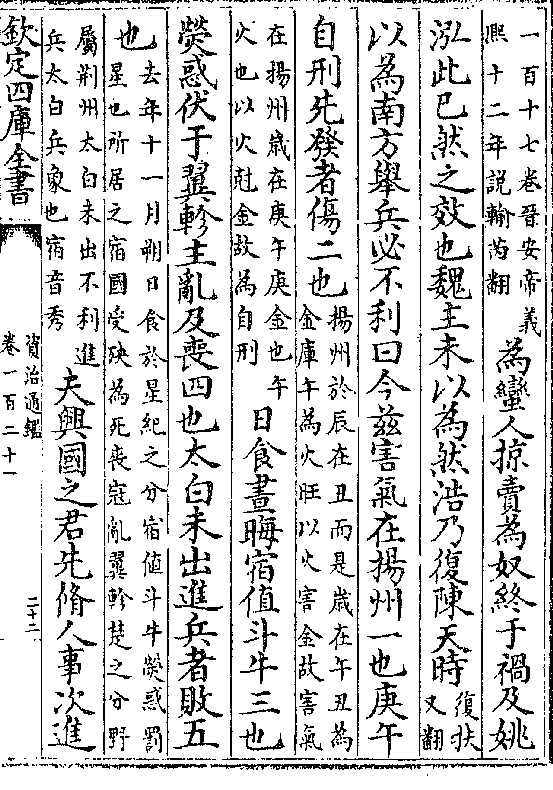 一百十七卷晉安帝義
熙十二年說輸芮翻
為蠻人掠賣為奴終于禍及姚
泓此已然之效也魏主未以為然浩乃復陳天時
復扶
又翻
以為南方舉兵必不利曰今兹害氣在揚州一也庚午
自刑先發者傷二也
揚州於辰在丑而是歲在午丑為
金庫午為火旺以火害金故害氣
在揚州歲在庚午庚金也午
火也以火尅金故為自刑
日食晝晦宿值斗牛三也
熒惑伏于翼軫主亂及喪四也太白未出進兵者敗五
也
去年十一月朔日食於星紀之分宿値斗牛熒惑罰
星也所居之宿國受殃為死喪寇亂翼軫楚之分野
屬荆州太白未出不利進
兵太白兵象也宿音秀
夫興國之君先脩人事次進
欽定四庫全書
資治通鑑
卷一百二十一
二十二